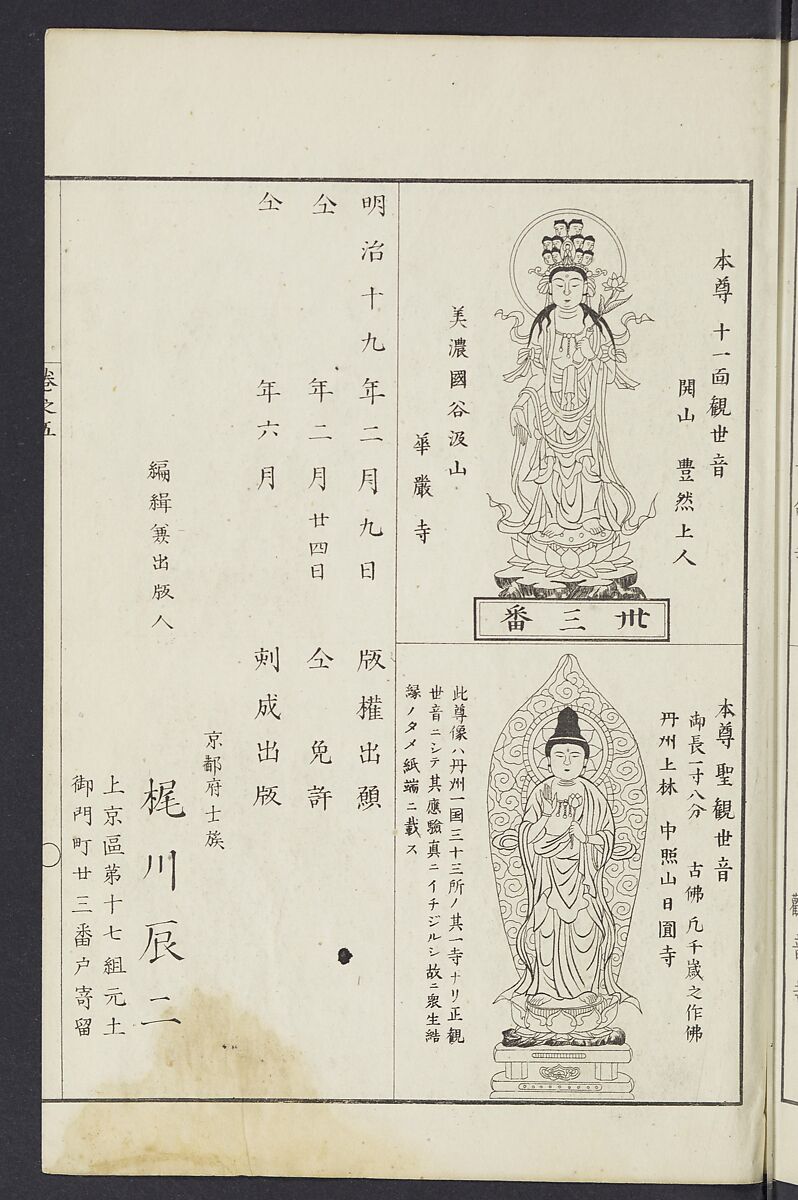 本尊 十一面観世音
開山 豊然上人
美濃國谷汲山
華嚴寺
卅三番
本尊 聖観世音
御長一寸八分 古佛凡千歳之作佛
丹州上林 中照山日圓寺
此尊像ハ丹州一国三十三所ノ其一寺ナリ正観
世音ニシテ其應驗真ニイチジルシ故ニ衆生結
縁ノタメ紙端ニ載ス
明治十九年二月九日 版權出願
仝 年二月廿四日 仝免許
仝 年六月 刺成出版
京都府士族
編緝兼出版人 梶川辰二
上京區第十七組元土
御門町廿三番戸寄留
卷之五